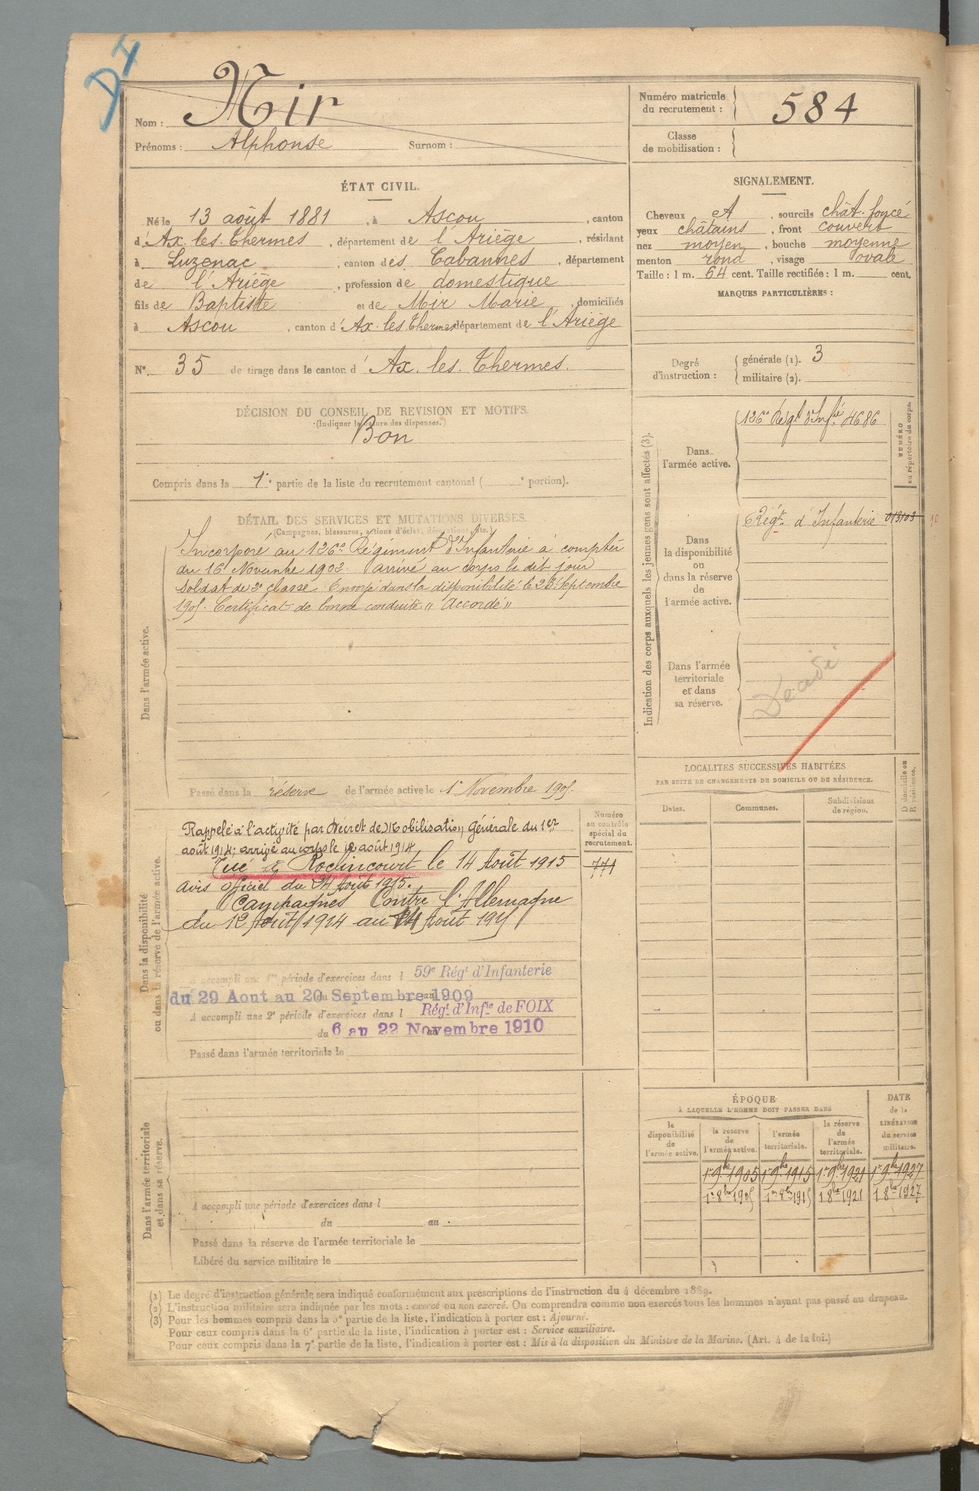 Nom : Mir
Prénoms : Alphonse Surnom :
Numéro matricule du recrutement : 584
Classe de mobilisation :
ÉTAT CIVIL.
Né le 13 août 1881, à Ascou, canton
d'Ax les Thermes, département de l'Ariège, résidant
à Luzenac, canton des Cabannes, département
de l'Ariège, profession de domestique
fils de Baptiste et de Mir Marie, domiciliés
à Ascou, canton d'Ax les Thermes département de l'Ariège
N° 35 de tirage dans le canton d'Ax les Thermes.
SIGNALEMENT.
Cheveux A, sourcils chât. foncé
yeux châtains, front couvert
nez moyen, bouche moyenne
menton rond, visage ovale
Taille : 1 m. 64 cent. Taille rectifiée : 1 m. cent.
MARQUES PARTICULIÈRES :
Degré d'instruction :
générale (1). 3
militaire (2).
DÉCISION DU CONSEIL DE REVISION ET MOTIFS.
(Indiquer la nature des dispenses.)
Bon
Compris dans la 1e partie de la liste du recrutement cantonal ( e portion).
DÉTAIL DES SERVICES ET MUTATIONS DIVERSES.
(Campagnes, blessures, actions d'éclat, décorations, etc.)
Dans l'armée active.
Incorporé au 126e Régiment d'Infanterie à compter
du 16 Novembre 1902. arrivé au corps le dit jour
soldat de 2e classe. Envoyé dans la disponibilité le 23 Septembre
1905. Certificat de bonne conduite "Accordé"
Passé dans la réserve de l'armée active le 1er Novembre 1905
Indication des corps auxquels les jeunes gens sont affectés (3).
NUMÉRO au répertoire du corps.
Dans l'armée active.
126e Régt d'Infie 4686
Dans la disponibilité ou dans la réserve de l'armée active.
Régt d'Infanterie
Dans l'armée territoriale et dans sa réserve.
Décédé
LOCALITÉS SUCCESSIVES HABITÉES
PAR SUITE DE CHANGEMENTS DE DOMICILE OU DE RÉSIDENCE.
Dates.
Communes.
Subdivisions de région.
D domicile ou R résidence.
Dans la disponibilité ou dans la réserve de l'armée active.
Numéro au contrôle spécial du recrutement.
Rappelé à l'activité par Décret de Mobilisation Générale du 1er
août 1914; arrivé au corps le 12 août 1914
Tué à Roclincourt le 14 Août 1915
avis officiel du 24 Août 1915.
Campagnes Contre l'Allemagne
du 12 Août 1914 au 14 Août 1915
A accompli une 1re période d'exercices dans l 59e Régt d'Infanterie
du 29 Aout au 20 Septembre 1909
A accompli une 2e période d'exercices dans l Régt d'Infie de FOIX
du 6 au 22 Novembre 1910
Passé dans l'armée territoriale le
Dans l'armée territoriale et dans sa réserve.
A accompli une période d'exercices dans l
du au
Passé dans la réserve de l'armée territoriale le
Libéré du service militaire le
ÉPOQUE
À LAQUELLE L'HOMME DOIT PASSER DANS
DATE de la LIBÉRATION du service militaire.
la disponibilité de l'armée active.
la réserve de l'armée active.
l'armée territoriale.
la réserve de l'armée territoriale.
1er 9bre 1905 1er 9bre 1915 1er 9bre 1921 1er 9bre 1927
1er 8bre 1905 1er 8bre 1915 1 8bre 1921 1 8bre 1927
(1) Le degré d'instruction générale sera indiqué conformément aux prescriptions de l'instruction du 4 décembre 1889.
(2) L'instruction militaire sera indiquée par les mots : exercé ou non exercé. On comprendra comme non exercés tous les hommes n'ayant pas passé au drapeau.
(3) Pour les hommes compris dans la 5e partie de la liste, l'indication à porter est : Ajourné.
Pour ceux compris dans la 6e partie de la liste, l'indication à porter est : Service auxiliaire.
Pour ceux compris dans la 7e partie de la liste, l'indication à porter est : Mis à la disposition du Ministre de la Marine. (Art. 4 de la loi.)